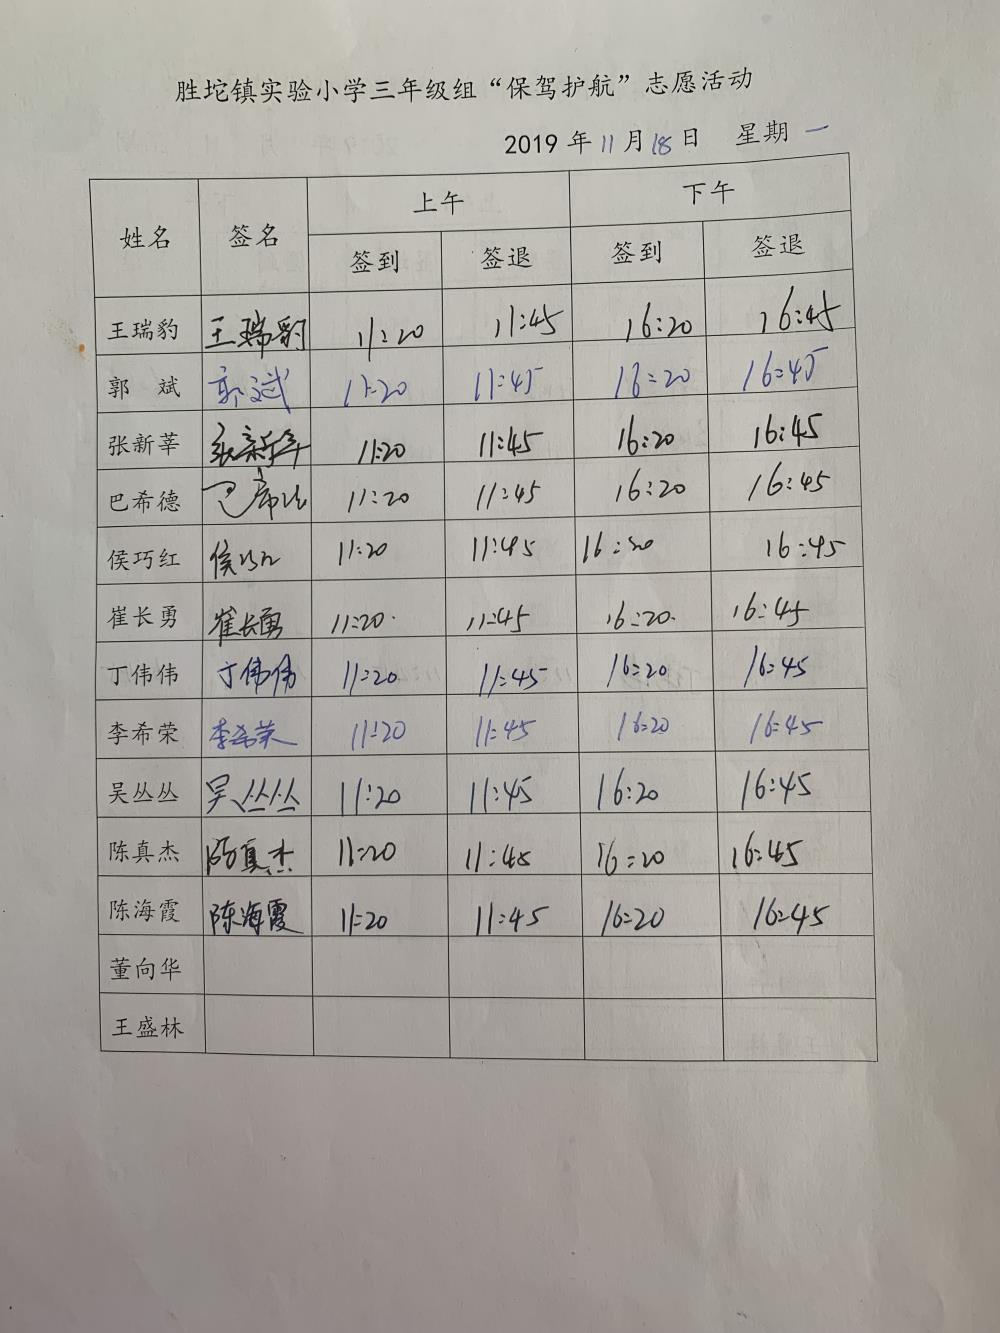 胜坨镇实验小学三年级组“保驾护航”志愿活动
2019 年 11 月 18 日 星期 一
姓名 签名 上午 下午
签到 签退 签到 签退
王瑞豹 王瑞豹 11:20 11:45 16:20 16:45
郭 斌 郭斌 11:20 11:45 16:20 16:45
张新莘 张新莘 11:20 11:45 16:20 16:45
巴希德 巴希德 11:20 11:45 16:20 16:45
侯巧红 侯巧红 11:20 11:45 16:20 16:45
崔长勇 崔长勇 11:20 11:45 16:20 16:45
丁伟伟 丁伟伟 11:20 11:45 16:20 16:45
李希荣 李希荣 11:20 11:45 16:20 16:45
吴丛丛 吴丛丛 11:20 11:45 16:20 16:45
陈真杰 陈真杰 11:20 11:45 16:20 16:45
陈海霞 陈海霞 11:20 11:45 16:20 16:45
董向华
王盛林